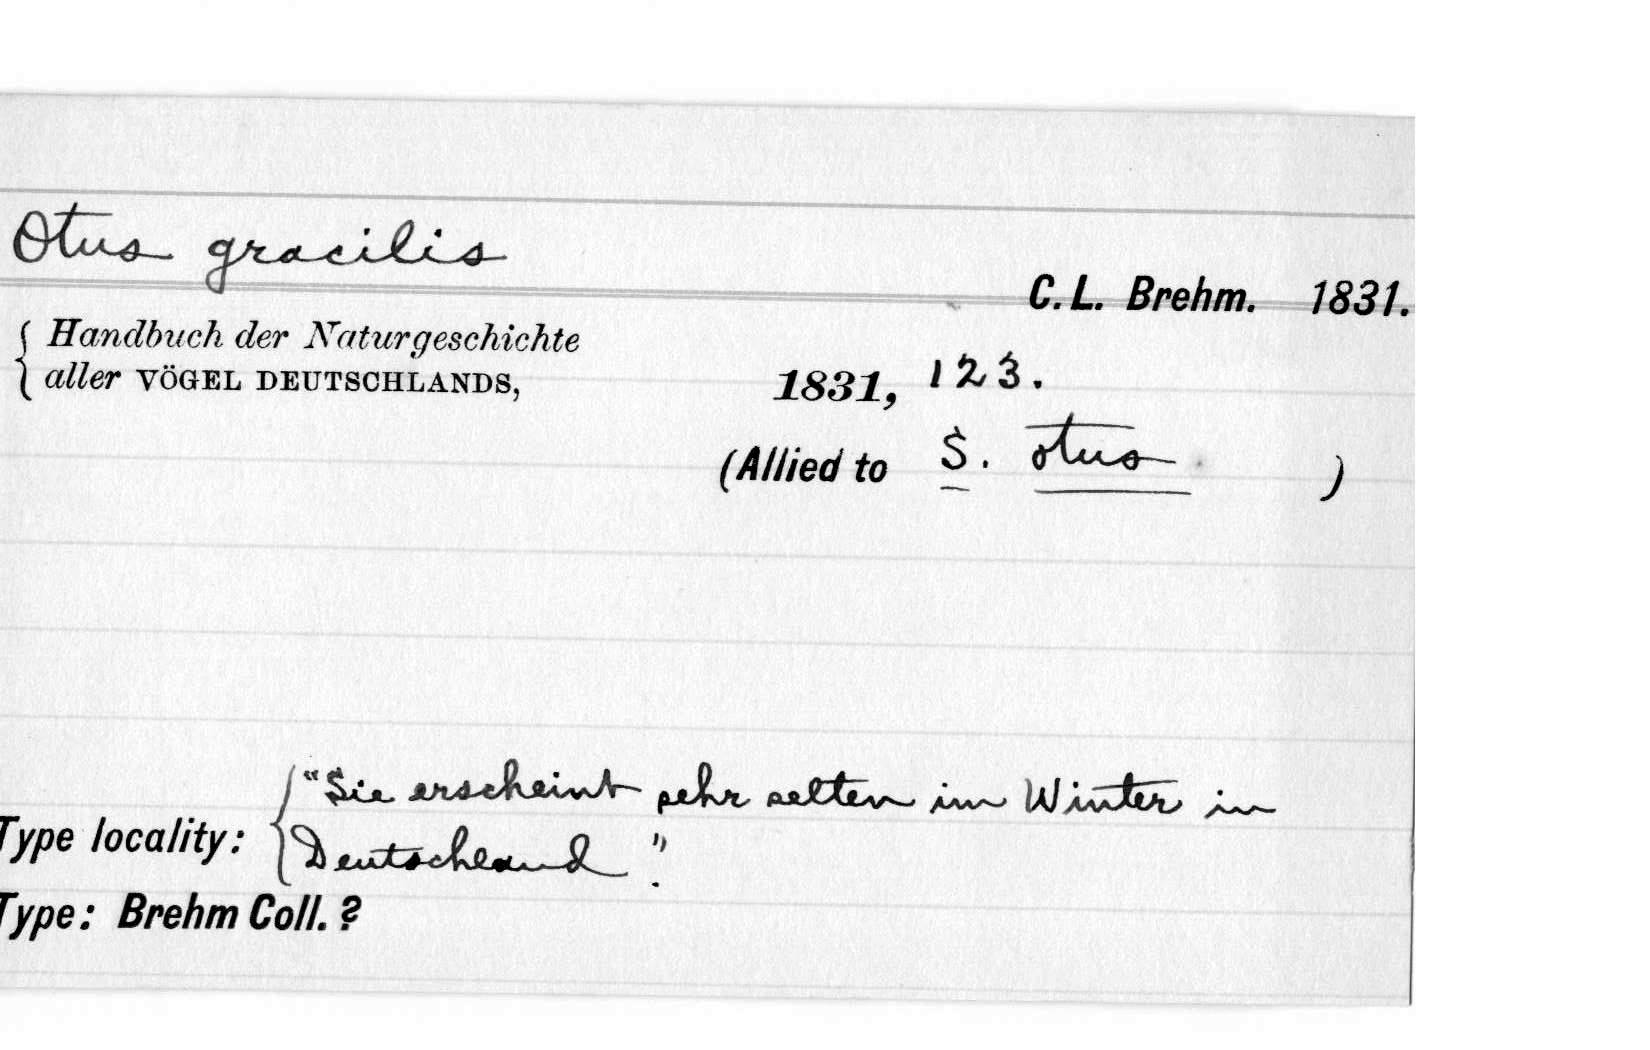 Otus gracilis
C. L. Brehm. 1831.
Handbuch der Naturgeschichte
aller VÖGEL DEUTSCHLANDS,
1831, 123.
(Allied to S. otus )
Type locality: "Sie erscheint sehr selten im Winter in
Deutschland".
Type: Brehm Coll. ?